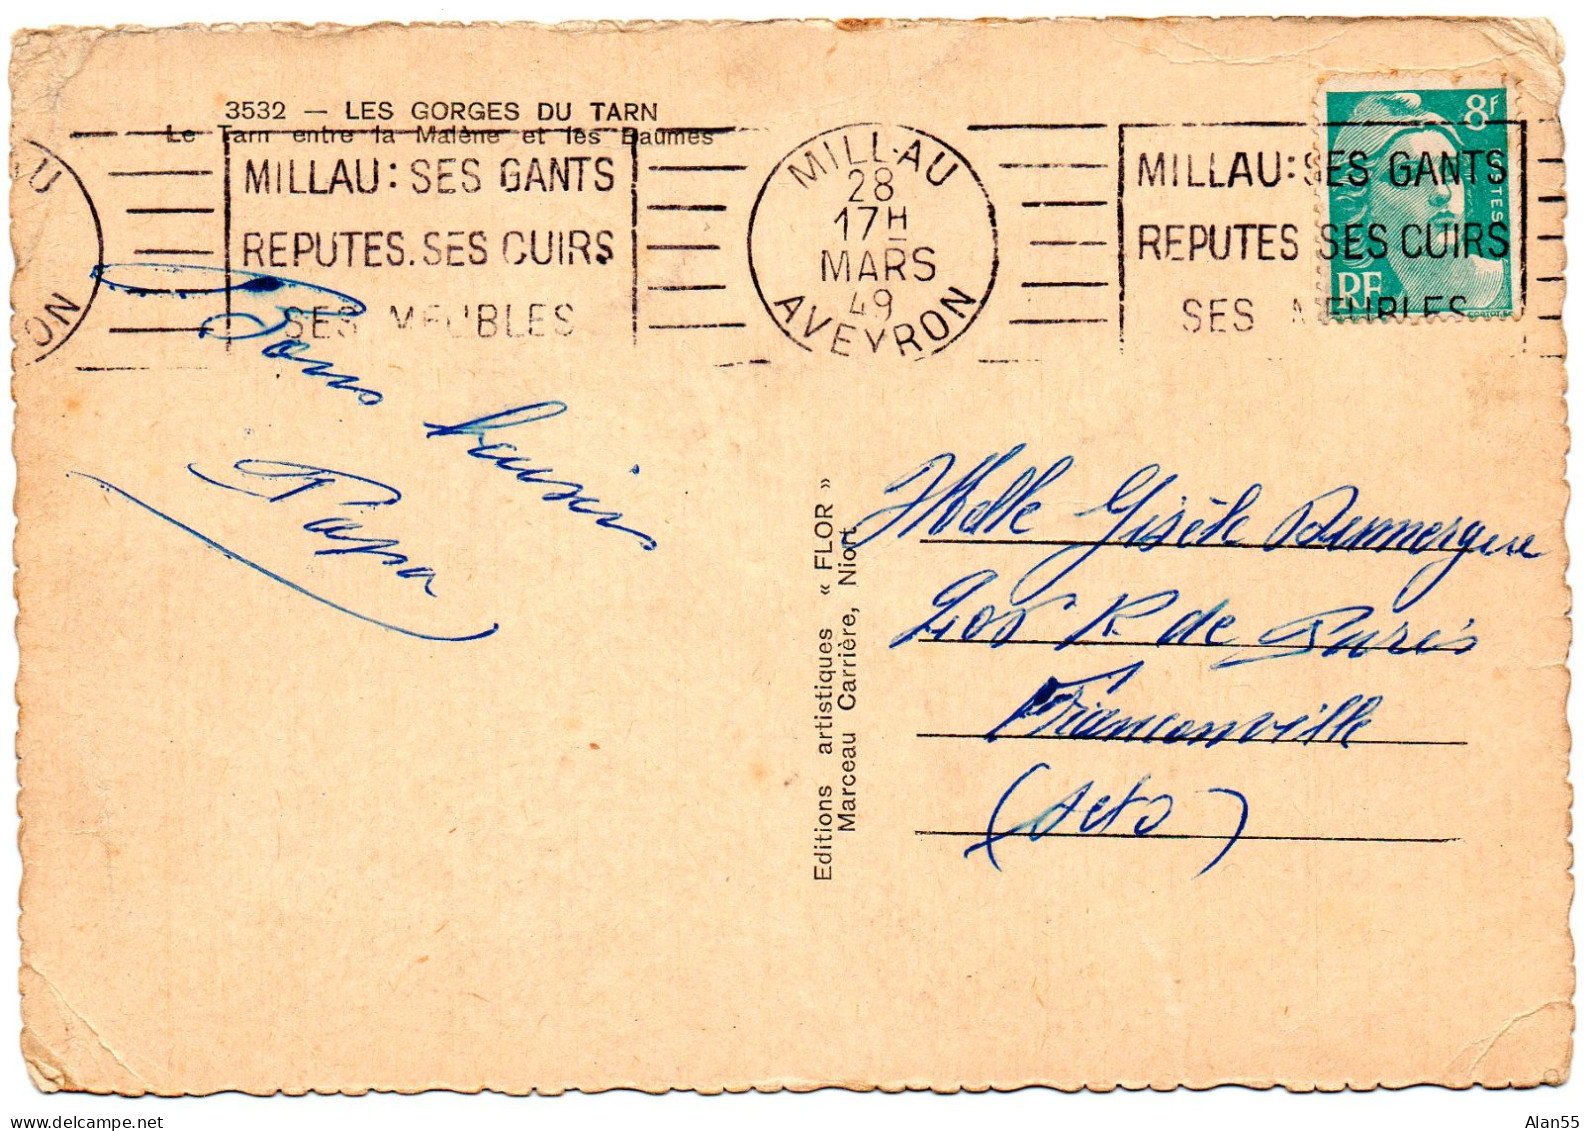 3532 — LES GORGES DU TARN
Le Tarn entre la Malène et les Baumes
MILLAU : SES GANTS
REPUTES. SES CUIRS
SES MEUBLES
MILLAU
28
17H
MARS
49
AVEYRON
MILLAU : SES GANTS
REPUTES SES CUIRS
SES MEUBLES
8F
POSTES
RF
Bons baisers
Papa
Editions artistiques « FLOR »
Marceau Carrière, Niort
Melle Gisèle Dumergue
R de Paris
Franconville
(Seto)
delcampe.net
Alan55